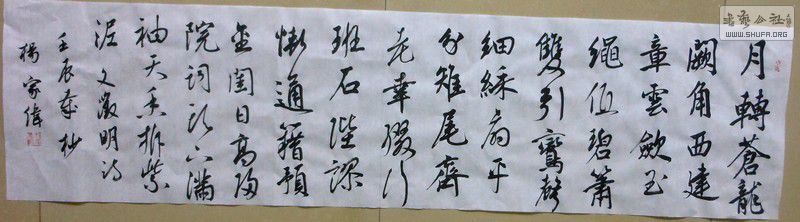 月轉蒼龍
闕角西建
章雲歛玉
繩低碧簫
雙引鸞聲
細綵扇平
分雉尾齊
老幸綴行
班石陛謬
慚通籍預
金閨日高歸
院詞頭下滿
袖天香拆紫
泥 文徵明詩
壬辰歲杪
楊家偉
书艺公社
WWW.SHUFA.ORG